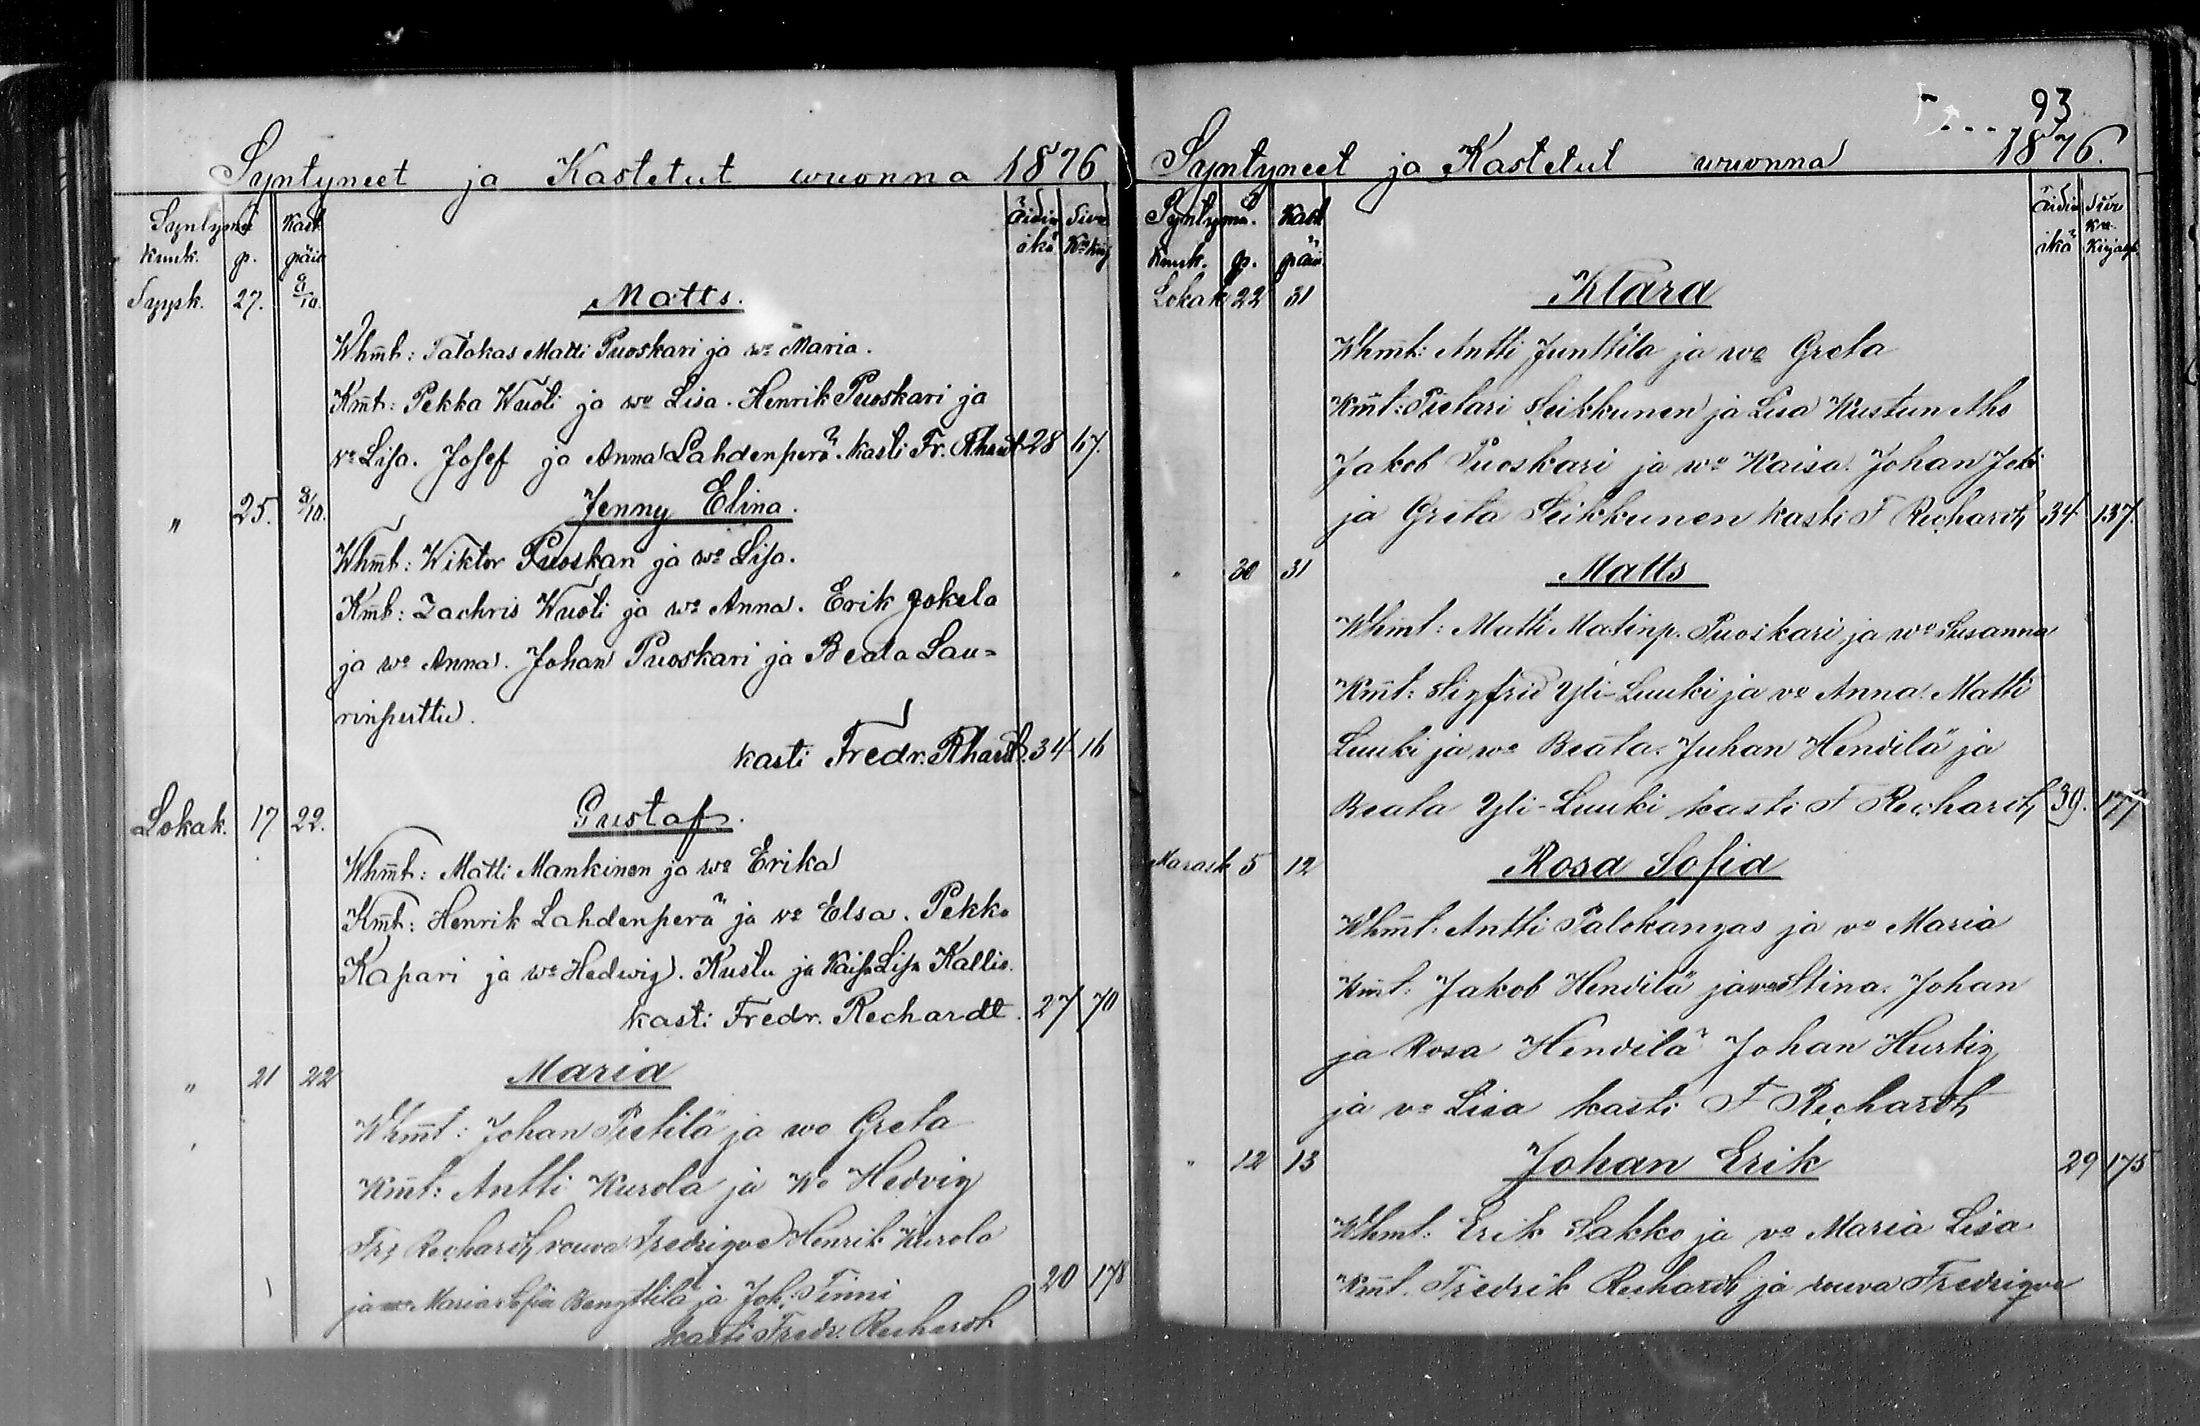 Syntyneet ja Kastetut wuonna 1876
Syntymä Kast. äidin Siv.
kuuk. p. päiv. ikä
Syysk. 27. 8/10. Matts.
Whm̅t: Talokas Matti Puoskari ja wo Maria.
Km̅t: Pekka Wuoti ja wo Lisa. Henrik Puoskari ja
vo Lisa. Josef ja Anna Lahdenperä. kasti Fr. 28 67.
" 25. 8/10. Jenny Elina.
Whm̅t: Wiktor Puoskari ja wo Lisa.
Km̅t: Zachris Wuoti ja wo Anna. Erik Jokela
ja wo Anna. Johan Puoskari ja Beata Lau=
rinperttu.
kasti Fredr. 34 16
Lokak. 17 22. Gustaf.
Whm̅t: Matti Mankinen ja wo Erika
Km̅t: Henrik Lahdenperä ja vo Elsa. Pekka
Kapari ja wo Hedwig. Kustu ja Kaisa Lisa Kallio.
kasti Fredr. Rechardt. 27 70
" 21 22 Maria
Whm̅t: Johan Pietilä ja wo Greta
Km̅t: Antti Kurola ja wo Hedvig
Fr, Rechardt, rouva Fredrique Henrik Kurola
ja wo Maria Sofia ja Joh. Finni 20 178
kasti Fredr. Rechardt
93
Syntyneet ja Kastetut wuonna 1876.
Syntymä. Kast. äidin Siv.
Kuuk. p. päiv. ikä Kirja
Lokak 22 31 Klara
Whm̅t: Antti Junttila ja wo Greta
Km̅t: Pietari Seikkunen ja Lisa Kustun Aho
Jakob Puoskari ja wo Kaisa. Johan Joki
ja Greta Seikkunen kasti F Rechardt, 34 137.
" 30 31 Matts
Whm̅t: Matti Matinp. Puoskari ja wo Susanna
Km̅t: Sigfrid Yli-Luuki ja vo Anna. Matti
Luuki ja wo Beata. Juhan Hendilä ja
Beata Yli-Luuki kasti F Rechardt, 39. 177
Marask 5 12 Rosa Sofia
Whm̅t: Antti Palokangas ja vo Maria
Km̅t: Jakob Hendilä ja vo Stina. Johan
ja Rosa Hendilä Johan Hurtig
ja vo Lisa kasti F Rechardt,
" 12 13 Johan Erik 29 175
Whm̅t: Erik Sakko ja vo Maria Lisa
Km̅t. Fredrik Rechardt ja rouva Fredrique